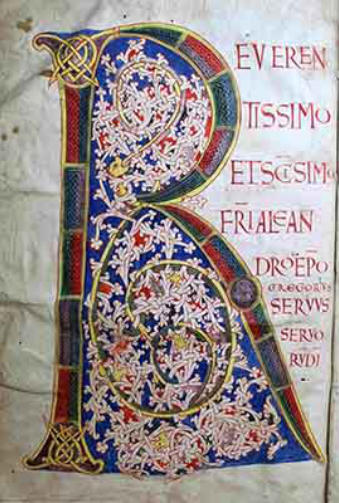 REVEREN
TISSIMO
ETSC̄ISIMO
FR̄IALEAN
DROEP̄O
GREGORIVS
SERVVS
SERVO
RVDI